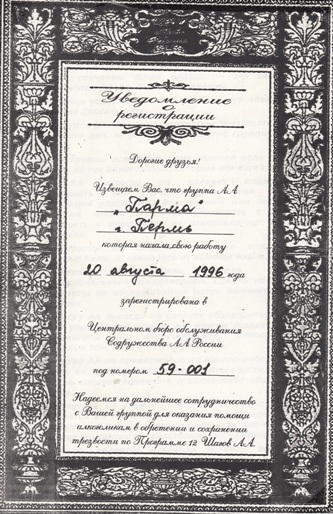 Уведомление
о
регистрации
Дорогие друзья!
Извещаем Вас, что группа А.А
„Парма"
г. Пермь
которая начала свою работу
20 августа 1996 года
зарегистрирована в
Центральном бюро обслуживания
Содружества АА России
под номером 59-001
Надеемся на дальнейшее сотрудничество
с Вашей группой для оказания помощи
алкоголикам в обретении и сохранении
трезвости по Программе 12 Шагов А.А.